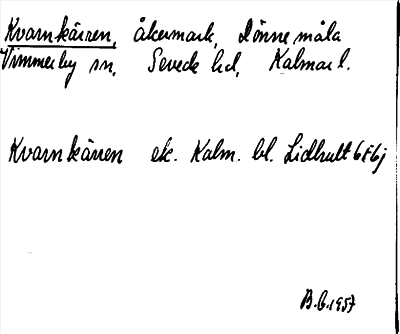 Kvarnkärren, åkermark, Dönnemåla
Vimmerby sn, Sevede hd, Kalmar l.
Kvarnkärren ek. Kalm. bl. Lidhult 6F6j
B.G. 1957